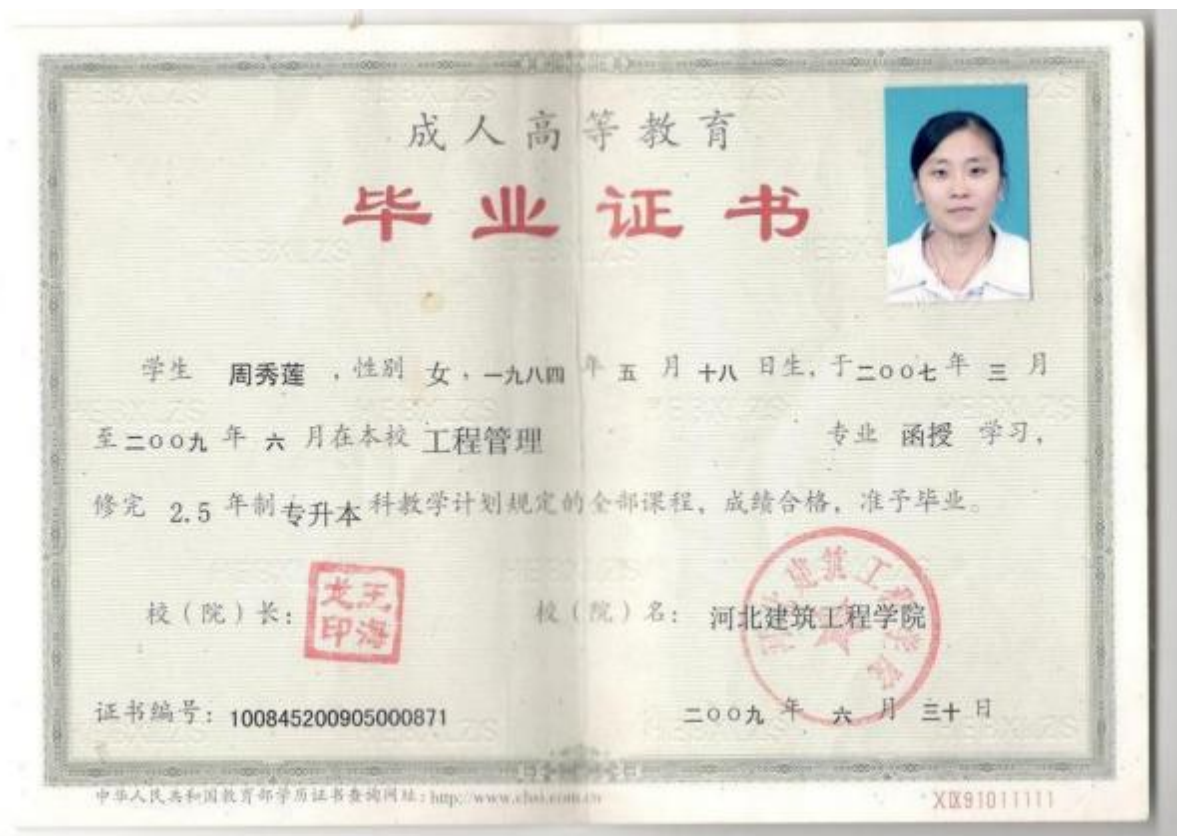 成人高等教育
毕业证书
学生 周秀莲 ，性别 女，一九八四 年 五 月 十八 日生，于二00七年 三 月
至二00九 年 六 月在本校 工程管理 专业 函授 学习，
修完 2.5 年制专升本科教学计划规定的全部课程，成绩合格，准予毕业。
校（院）长：
王海龙印
校（院）名： 河北建筑工程学院
河北建筑工程学院
证书编号：100845200905000871
二00九 年 六 月 三十 日
中华人民共和国教育部学历证书查询网址：http://www.chsi.com.cn
XIX91011111